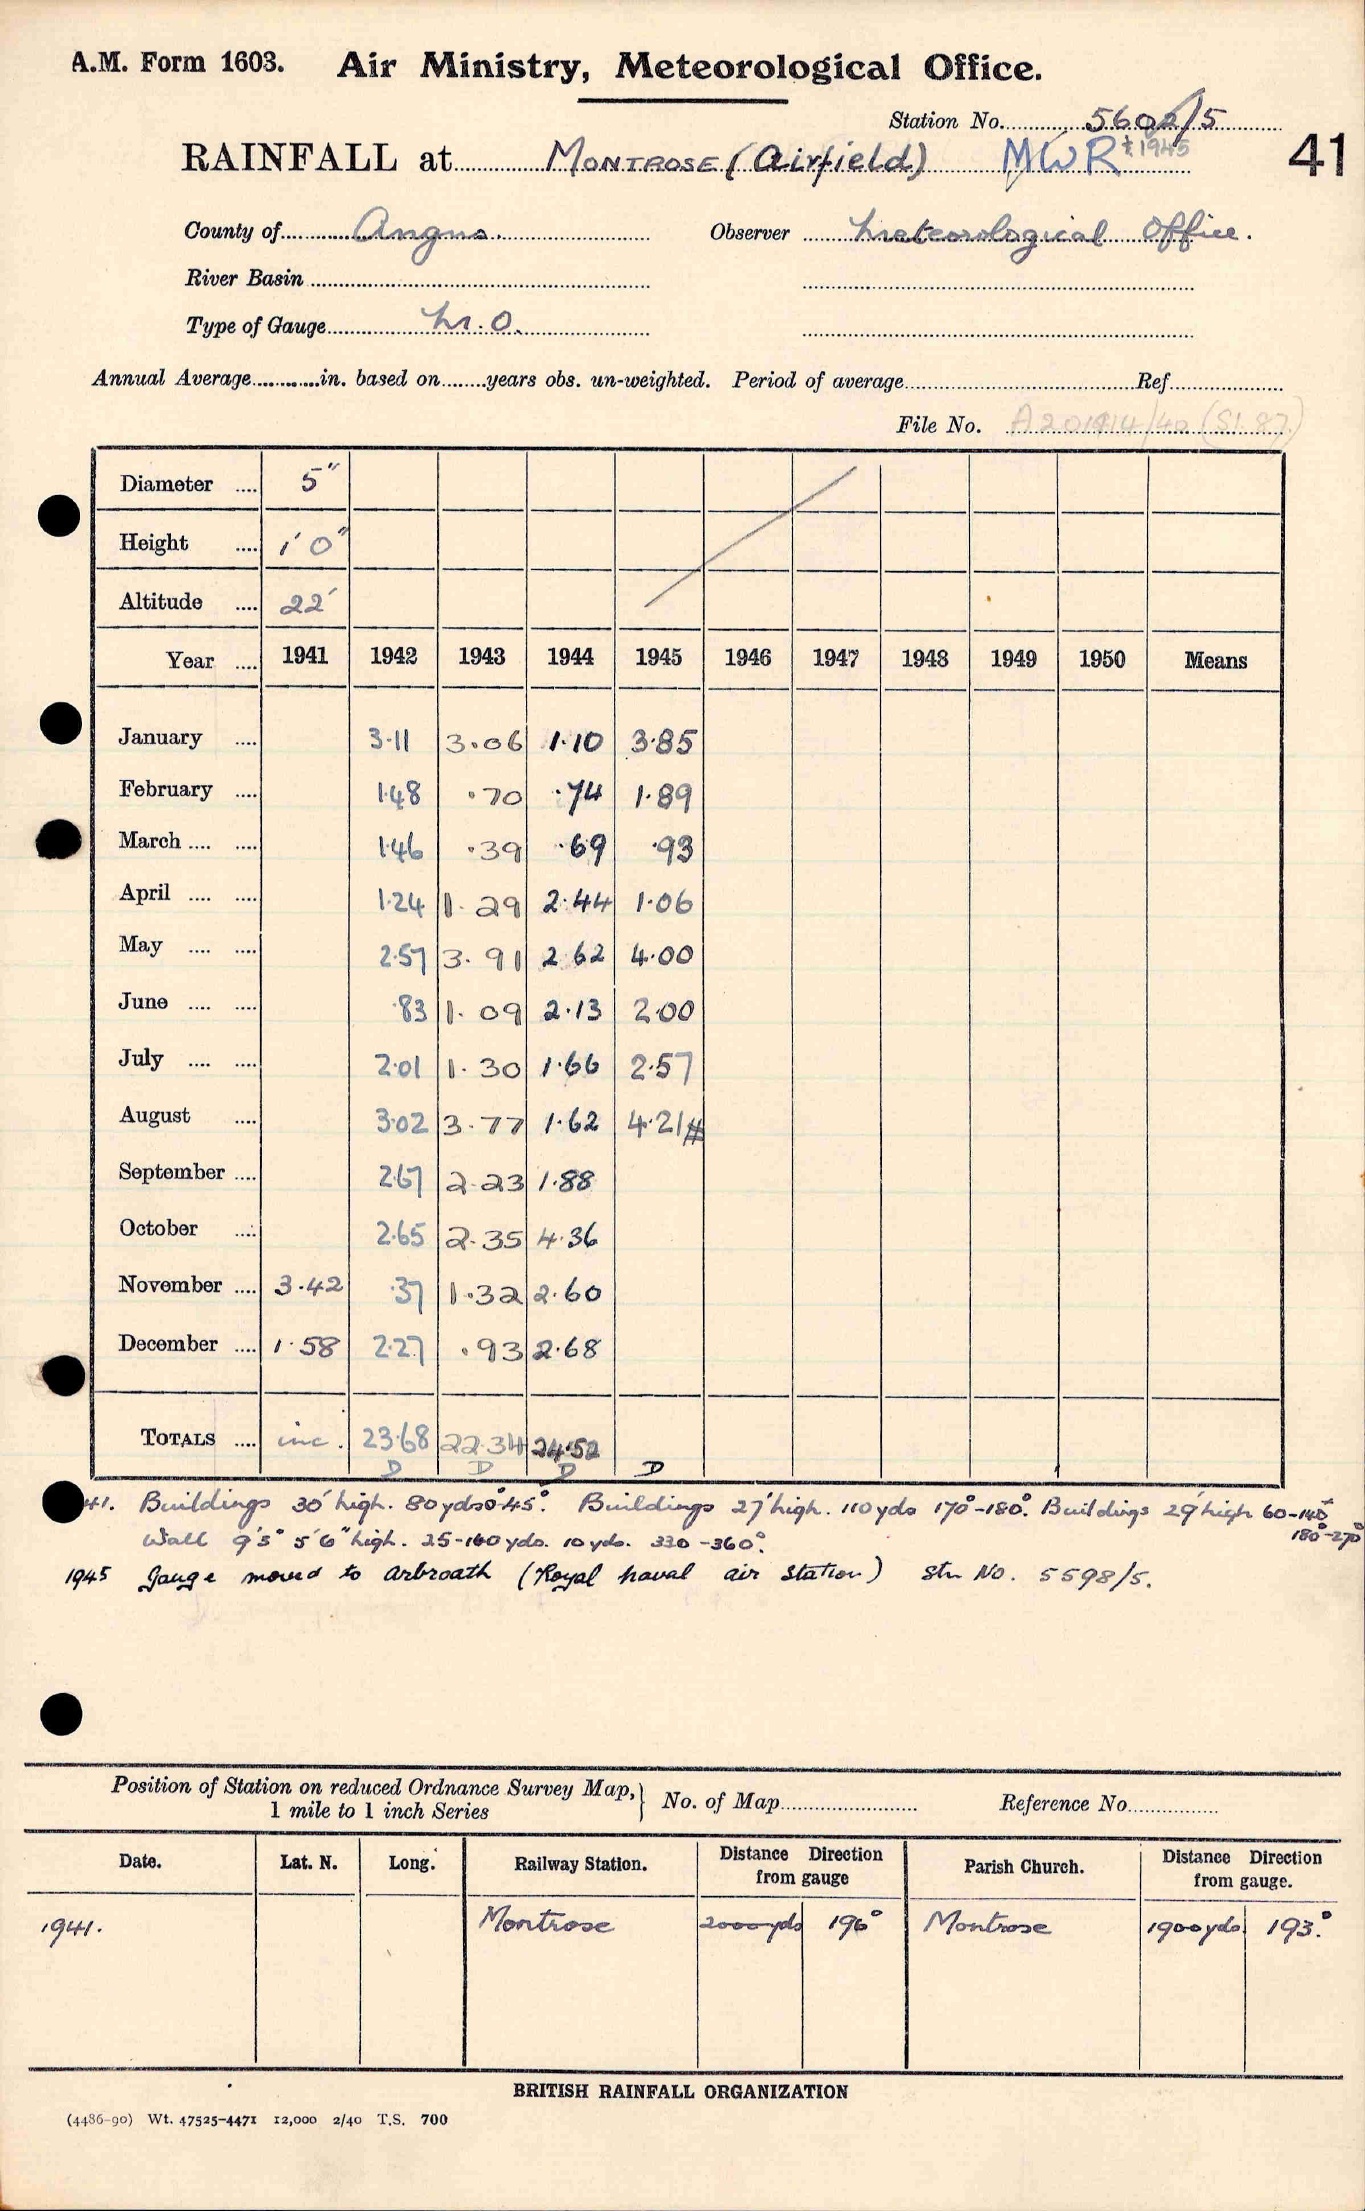 A.M. Form 1603. Air Ministry, Meteorological Office.
Station No. 5602/5
RAINFALL at Montrose (Airfield) MWR † 1945 41
County of Angus. Observer Meteorological Office.
River Basin
Type of Gauge M.O.
Annual Average in. based on years obs. un-weighted. Period of average Ref
File No. (S1.87.)
Diameter .... 5"
Height .... 1' 0"
Altitude .... 22'
Year .... 1941 1942 1943 1944 1945 1946 1947 1948 1949 1950 Means
January .... 3.11 3.06 1.10 3.85
February .... 1.48 .70 .74 1.89
March .... .... 1.46 .39 .69 .93
April .... .... 1.24 1.29 2.44 1.06
May .... .... 2.57 3.91 2.62 4.00
June .... .... .83 1.09 2.13 2.00
July .... .... 2.01 1.30 1.66 2.57
August .... 3.02 3.77 1.62 4.21#
September .... 2.67 2.23 1.88
October .... 2.65 2.35 4.36
November .... 3.42 .37 1.32 2.60
December .... 1.58 2.27 .93 2.68
Totals .... inc. 23.68 22.34 24.52
D D D D
41. Buildings 30' high. 80 yds 0°-45°. Buildings 27' high. 110 yds 170°-180°. Buildings 29' high 60-140°
180°-270°
Wall 9'5" 5'6" high. 25-160 yds. 10 yds. 330-360°.
1945 Gauge moved to Arbroath (Royal Naval Air Station) Stn No. 5598/5.
Position of Station on reduced Ordnance Survey Map,} No. of Map Reference No.
1 mile to 1 inch Series
Date. Lat. N. Long. Railway Station. Distance from gauge Direction Parish Church. Distance from gauge. Direction
1941. Montrose 2000 yds 196° Montrose 1900 yds. 193.°
BRITISH RAINFALL ORGANIZATION
(4486-90) Wt. 47525-4471 12,000 2/40 T.S. 700